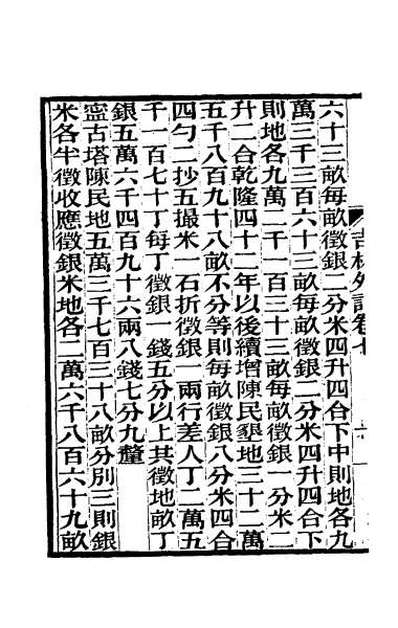 六十三畝每畝徵銀二分米四升四合下中則地各九
萬三千三百六十三畝每畝徵銀二分米四升四合下
則地各九萬二千一百三十三畝每畝徵銀一分米二
升二合乾隆四十二年以後續增陳民墾地三十二萬
五千八百九十八畝不分等則每畝徵銀八分米四合
四勺二抄五撮米一石折徵銀一兩行差人丁二萬五
千一百七十丁每丁徵銀一錢五分以上共徵地畝丁
銀五萬六千四百九十六兩八錢七分九釐
寧古塔陳民地五萬三千七百三十八畝分別三則銀
米各半徵收應徵銀米地各二萬六千八百六十九畝